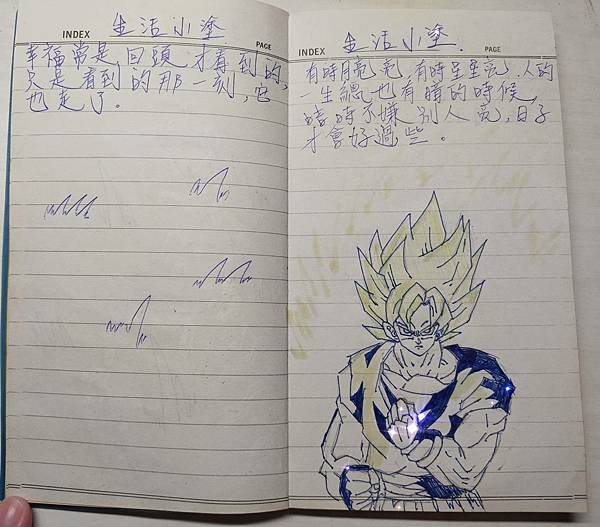 INDEX 生活小塗 PAGE
幸福常是,回頭才看到的,
只是看到的那一刻,它
也走了。
INDEX 生活小塗. PAGE
有時月亮亮,有時星星亮.人的
一生總也有暗的時候,
暗時不嫌別人亮,日子
才會好過些。